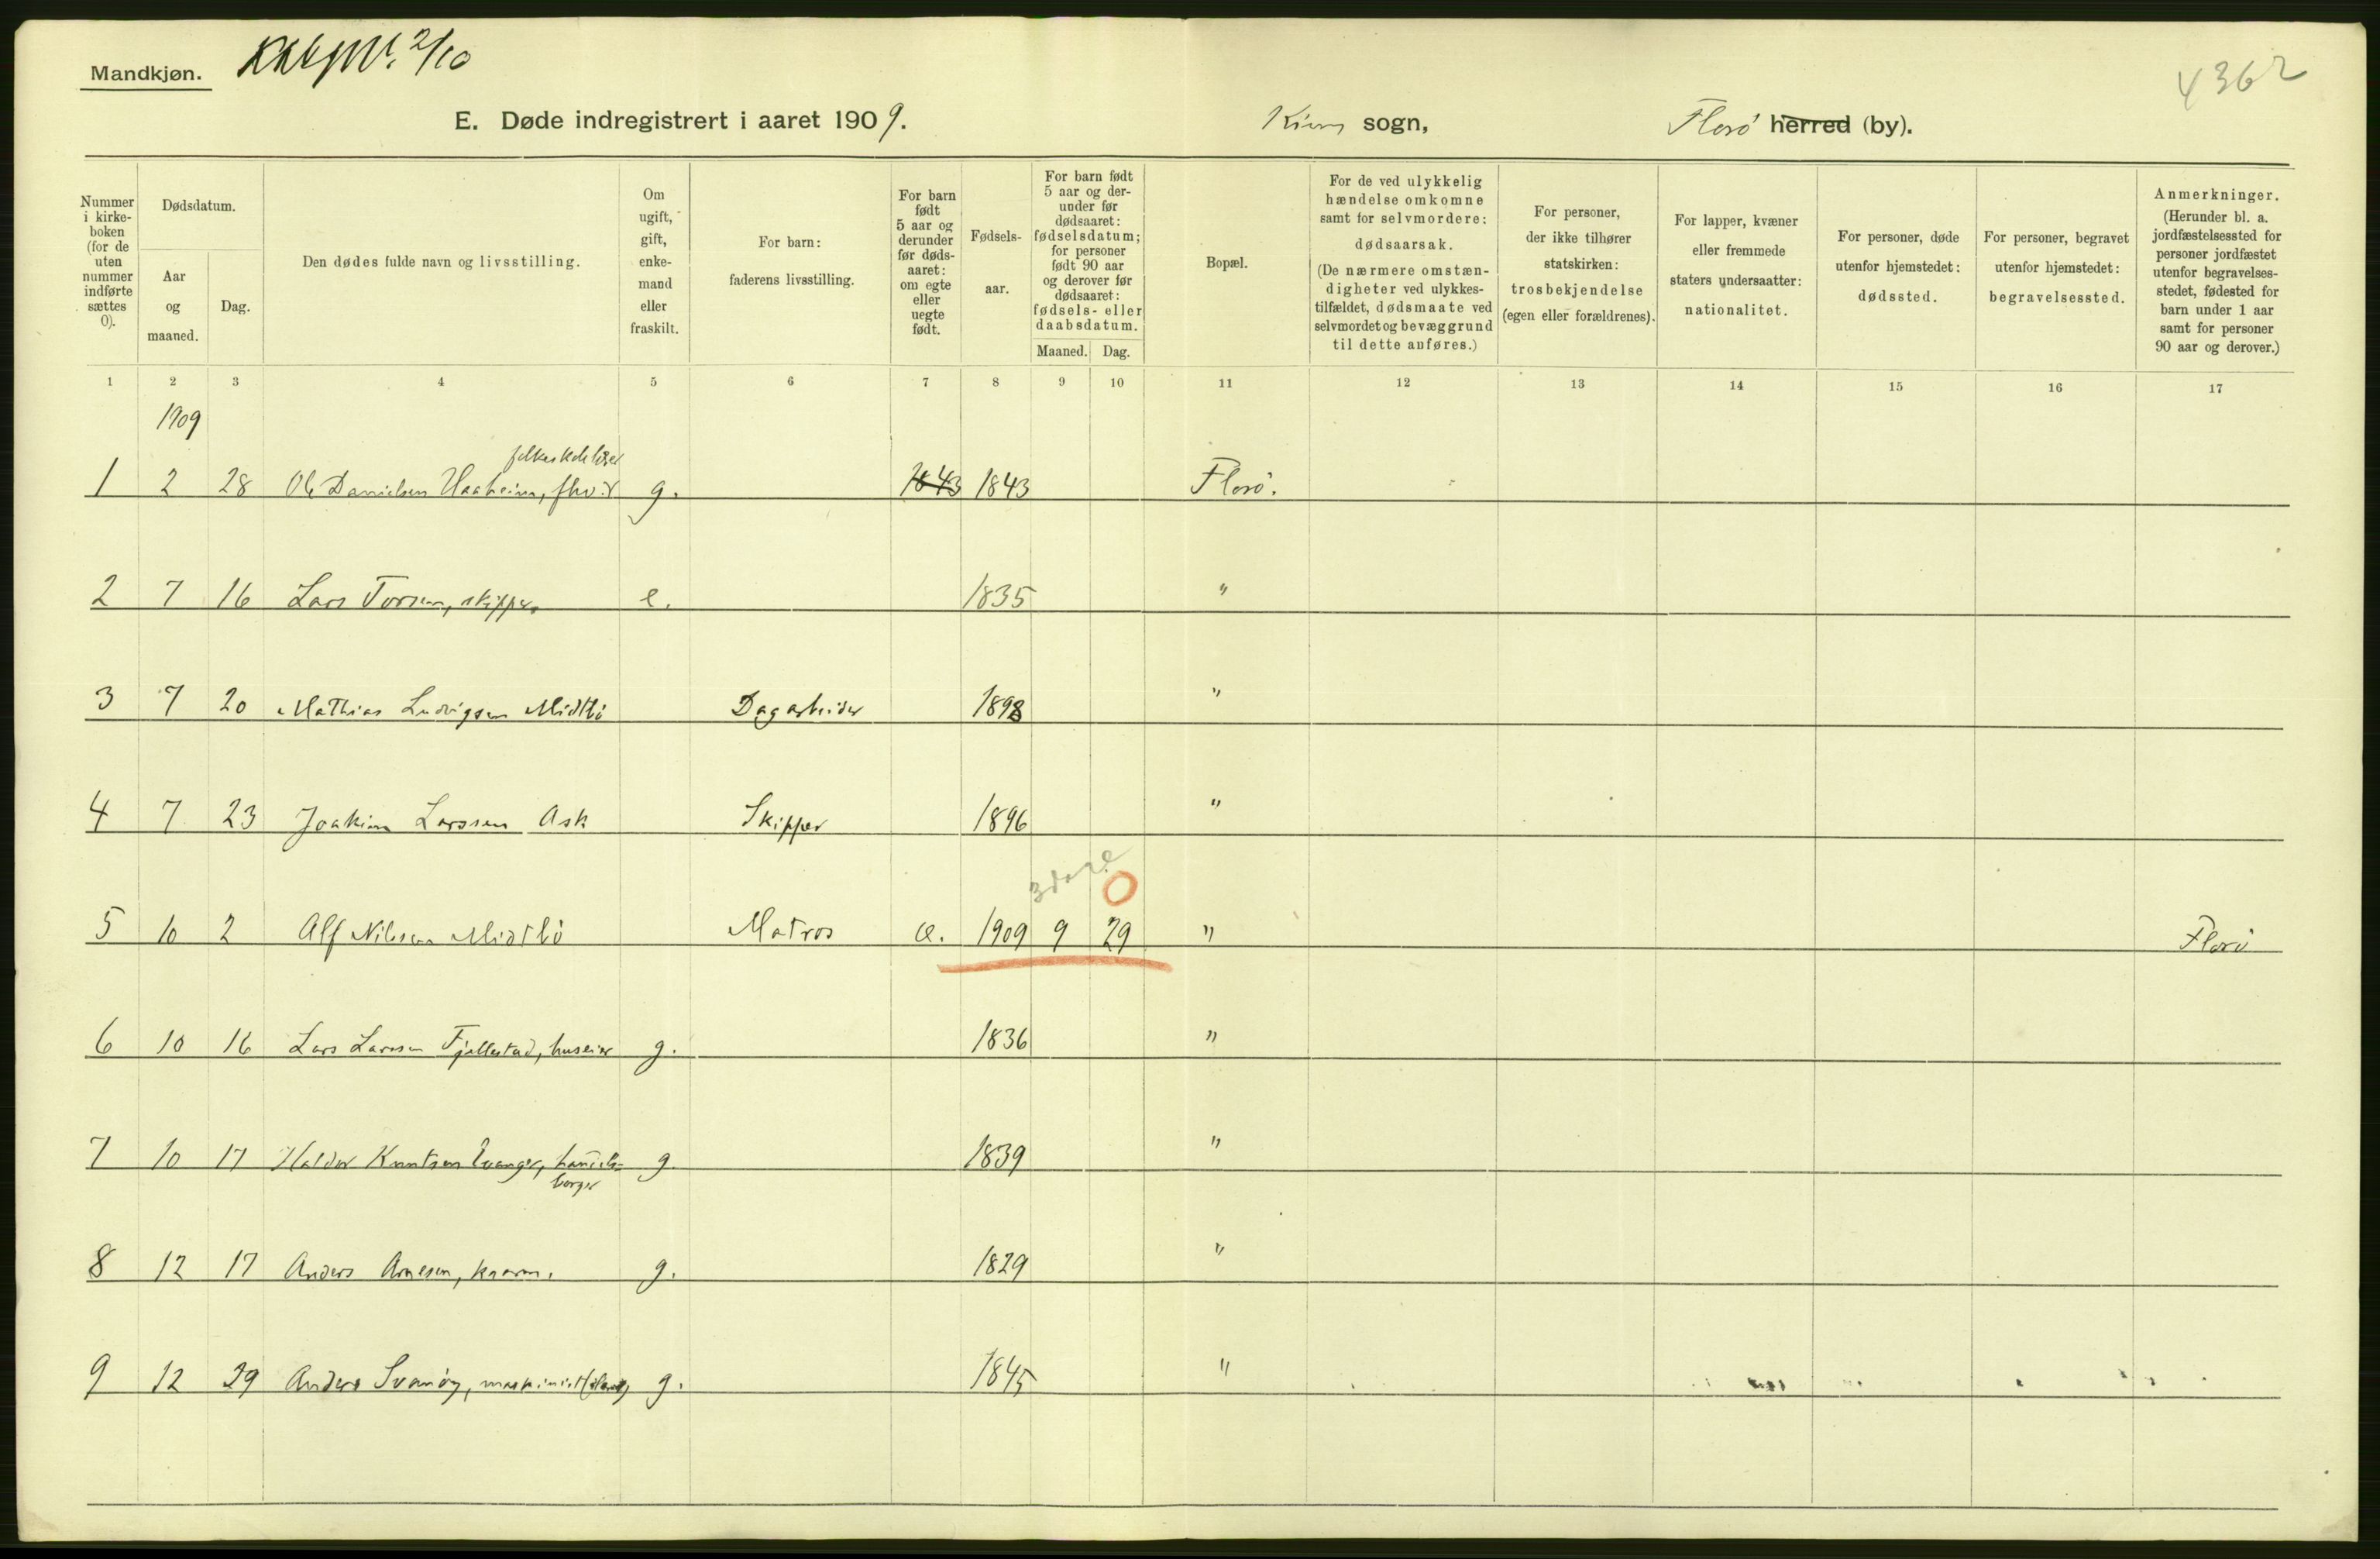 Mandkjøn.
2/10
4362
E. Døde indregistrert i aaret 1909.
Kinn sogn,
Florø herred (by).
Nummer i kirkeboken (for de uten nummer indførte sættes 0).
Dødsdatum.
Aar og maaned.
Dag.
Den dødes fulde navn og livsstilling.
Om ugift, gift, enkemand eller fraskilt.
For barn: faderens livsstilling.
For barn født 5 aar og derunder før dødsaaret: om egte eller uegte født.
Fødselsaar.
For barn født 5 aar og derunder før dødsaaret: fødselsdatum; for personer født 90 aar og derover før dødsaaret: fødsels- eller daabsdatum.
Maaned. Dag.
Bopæl.
For de ved ulykkelig hændelse omkomne samt for selvmordere: dødsaarsak.
(De nærmere omstændigheter ved ulykkestilfældet, dødsmaate ved selvmordet og bevæggrund til dette anføres.)
For personer, der ikke tilhører statskirken: trosbekjendelse (egen eller forældrenes).
For lapper, kvæner eller fremmede staters undersaatter: nationalitet.
For personer, døde utenfor hjemstedet: dødssted.
For personer, begravet utenfor hjemstedet: begravelsessted.
Anmerkninger.
(Herunder bl. a. jordfæstelsessted for personer jordfæstet utenfor begravelsesstedet, fødested for barn under 1 aar samt for personer 90 aar og derover.)
1 2 3 4 5 6 7 8 9 10 11 12 13 14 15 16 17
1909
1 2 28 Ole Danielsen Haaheim, fhv. g. 1843 1843 Florø.
2 7 16 Lars Torsen, skipper e. 1835 "
3 7 20 Mathias Ludvigsen Midtbø Dagarbeider 1898 "
4 7 23 Joakim Larssen Ask Skipper 1896 "
3 dage
0
5 10 2 Alf Nilsen Midtbø Matros e. 1909 9 29 " Florø
6 10 16 Lars Larssen Fjellestad, huseier g. 1836 "
7 10 17 Haldor Knutsen Evanger, handels- g. 1839 "
borger
8 12 17 Anders Arnesen, kaarm. g. 1829 "
9 12 29 Anders Svanøy, maskinist g. 1845 "